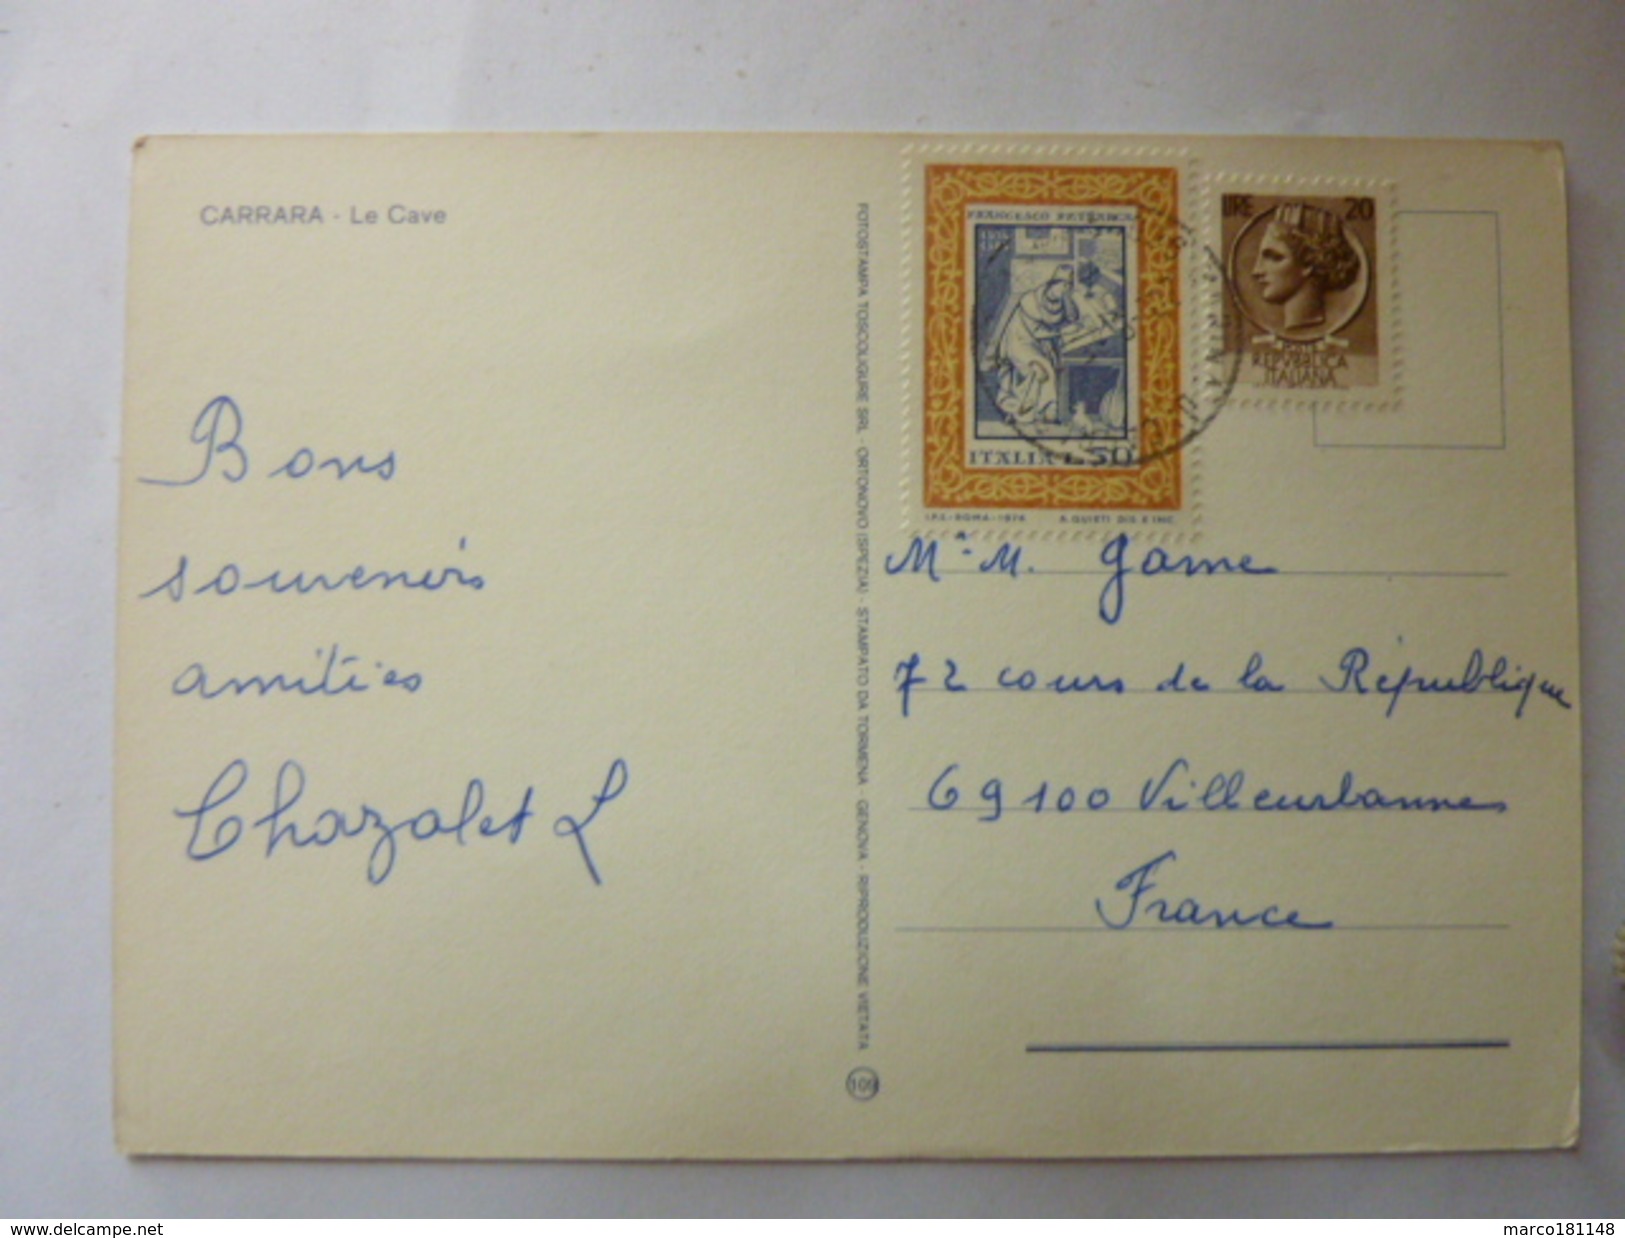 CARRARA - Le Cave
Bons
souvenirs
amitiés
Chazalet L
FOTOSTAMPA TOSCOLIGURE SRL - ORTONOVO (SPEZIA) - STAMPATO DA TORMENA - GENOVA - RIPRODUZIONE VIETATA
109
FRANCESCO PETRARCA
ITALIA L. 50
I.P.S.-ROMA-1974 A. QUIETI DIS. E INC.
LIRE 20
POSTE
REPVBBLICA
ITALIANA
M. M. Game
72 cours de la République
69100 Villeurbanne
France
www.delcampe.net
marco181148